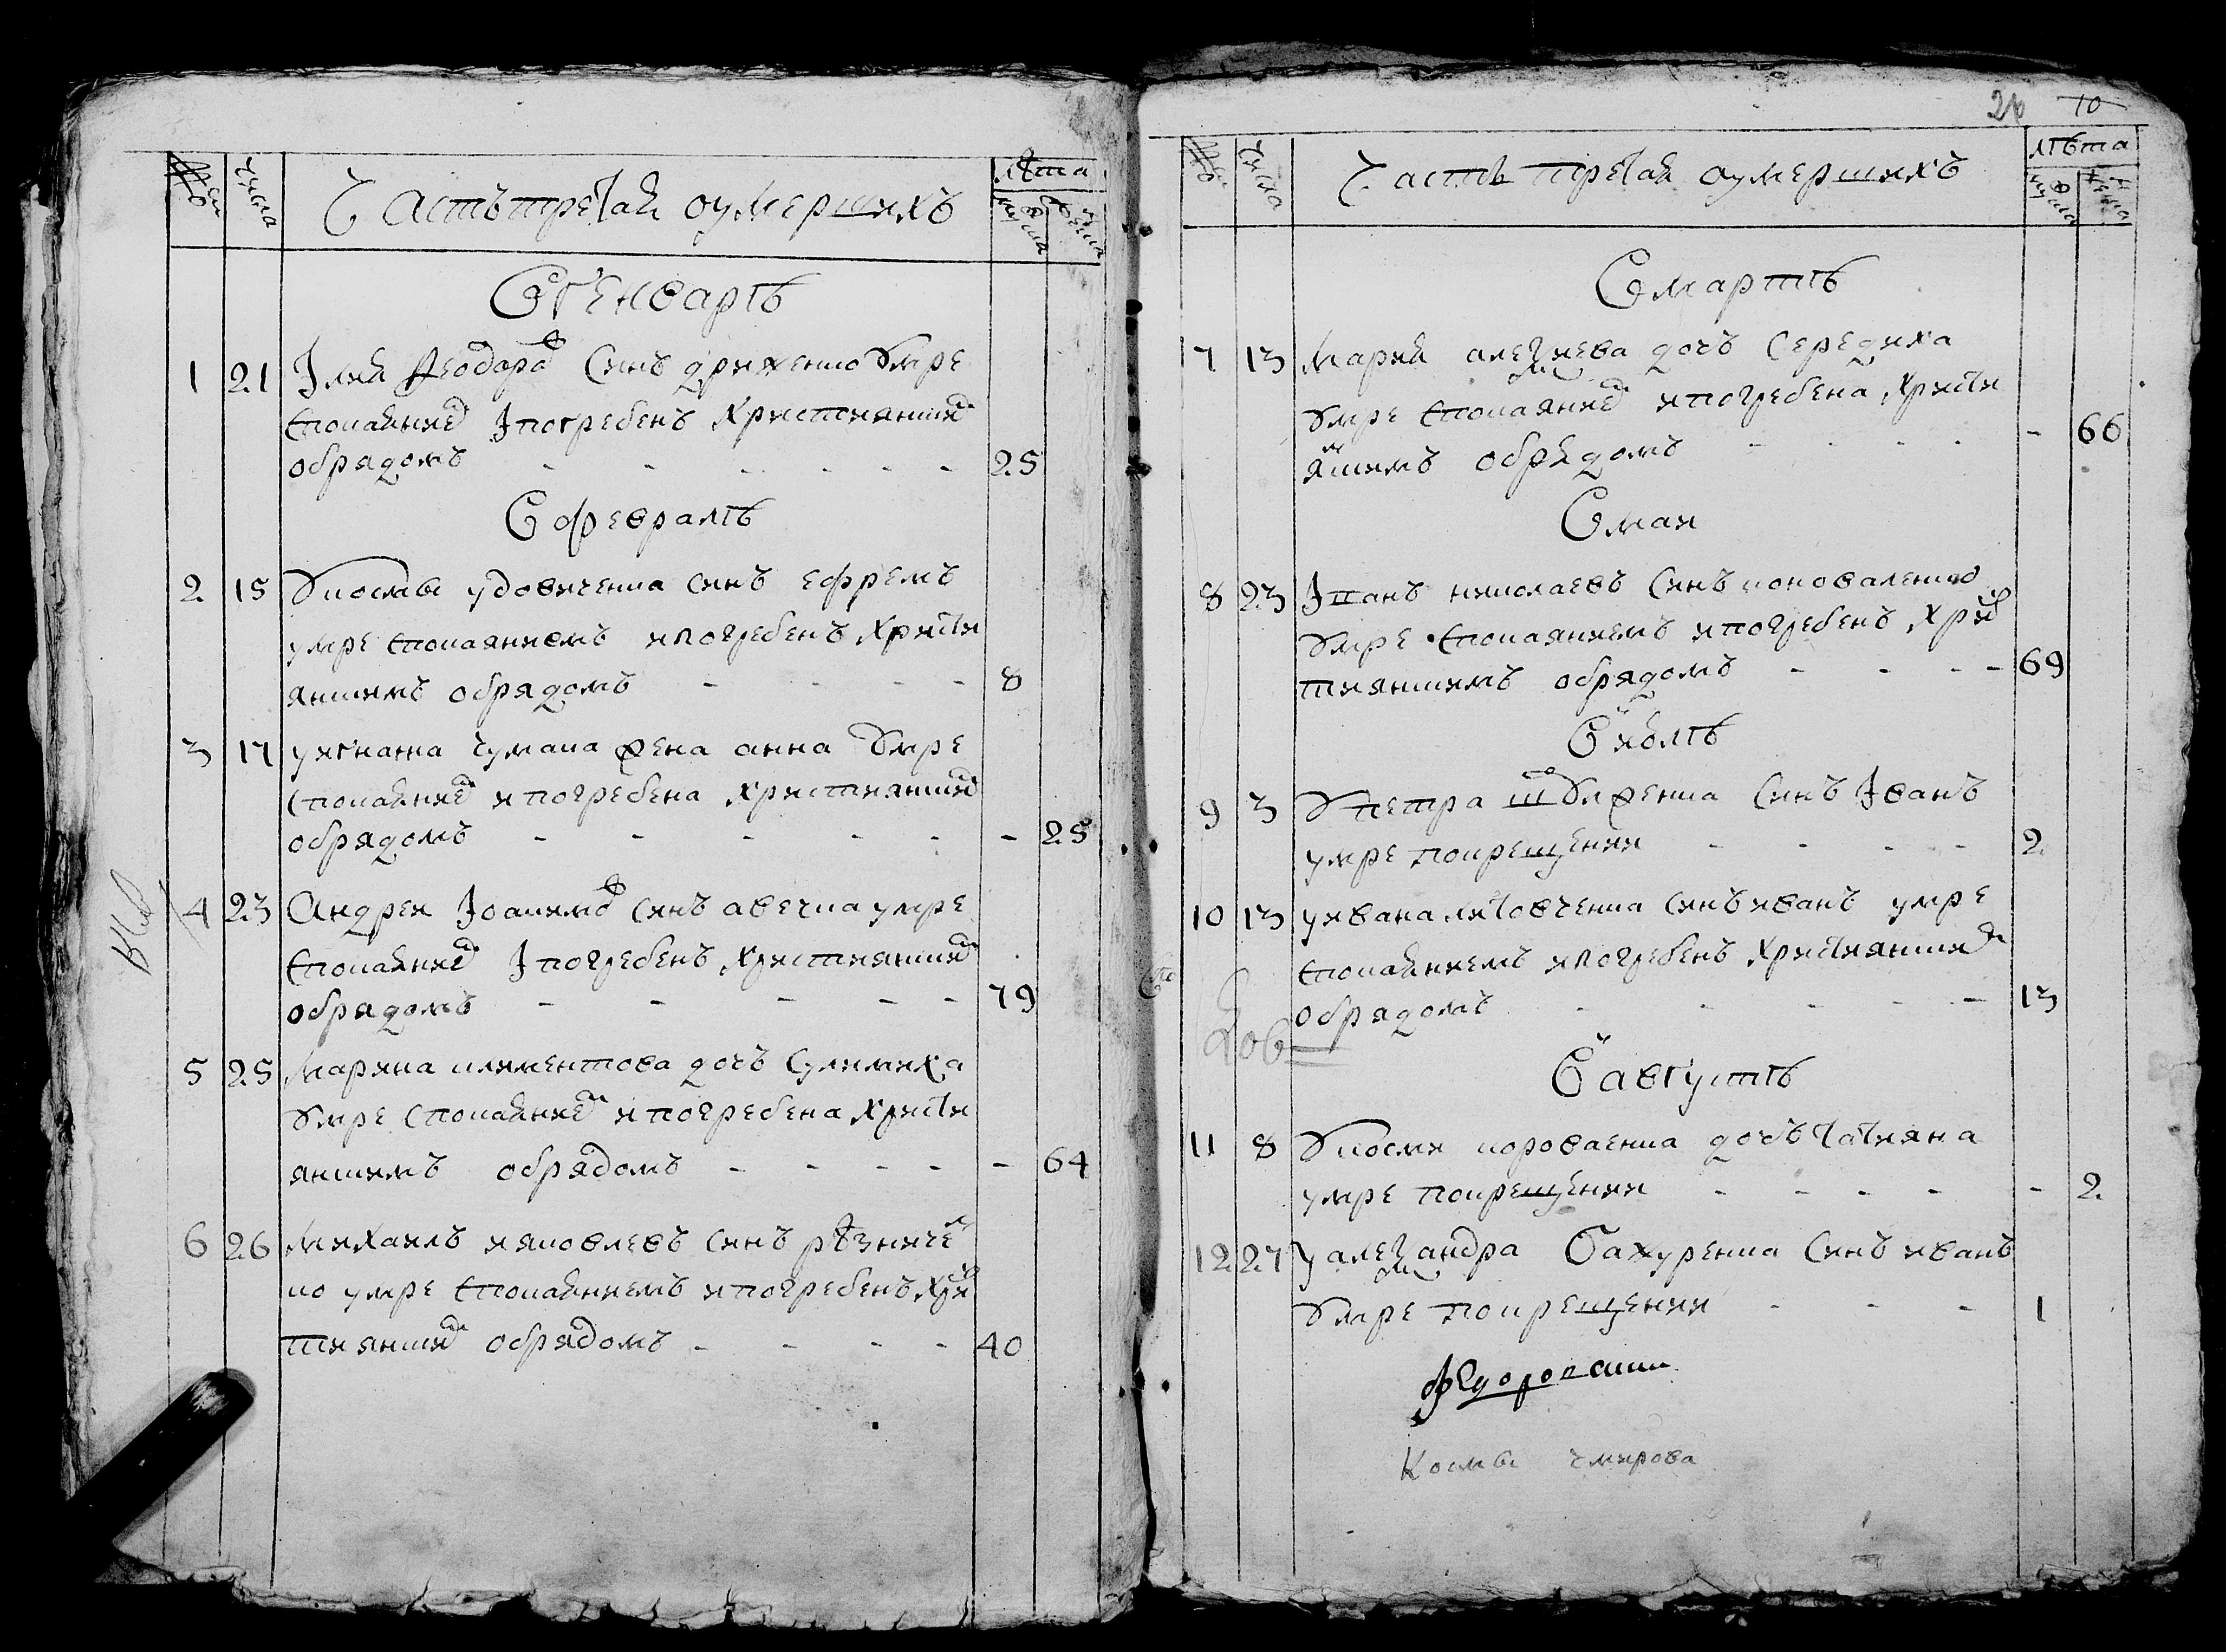 Числа Часть третая оумершихъ лѣта
муж женска
В генварѣ
1 21 Iлия Феодоров синъ дриженко умре
споканием I погребенъ християнским
обрядомъ - - - - - - 25
В февралѣ
2 15 У косми удовиченка синъ ефремъ
умре спокаянием и погребенъ христи
янскимъ обрядомъ - - - - 8
3 17 у игната чумака жена анна умре
спокаянием и погребена християнским
обрядомъ - - - - - - 25
4 23 Андреи Iоакимов синъ авечка умре
спокаянием I погребенъ християнским
обрядомъ - - - - - 79
5 25 Марина климентова дочъ сулимиха
умре спокаянием и погребена христи
янскимъ обрядомъ - - - - - 64
6 26 Михаилъ ияковлевъ синъ рѣзничен
ко умре спокаяниемъ и погребенъ хрис
тиянским обрядомъ - - - - 40
26 10
Числа Часть третая оумершихъ лѣта
муж женска
В мартѣ
7 13 Мария алеѯиева дочъ середиха
умре спокаянием и погребена христи
янскимъ обрядомъ - - - - - 66
В маи
8 23 Iванъ николаевъ синъ коноваленко
умре спокаяниемъ и погребенъ хрис
тиянскимъ обрядомъ - - - - 69
В июлѣ
9 3 У петра шулженка синъ Iванъ
умре покрещении - - - - 2
10 13 у ивана литовченка синъ иванъ умре
спокаяниемъ и погребенъ християнским
обрядомъ - - - - - 13
В августѣ
11 8 У косми короваенка дочъ татияна
умре покрещении - - - - - 2
12 27 У алеѯандра бажуренка синъ иванъ
умре покрещении - - - 1
Косми чмирова